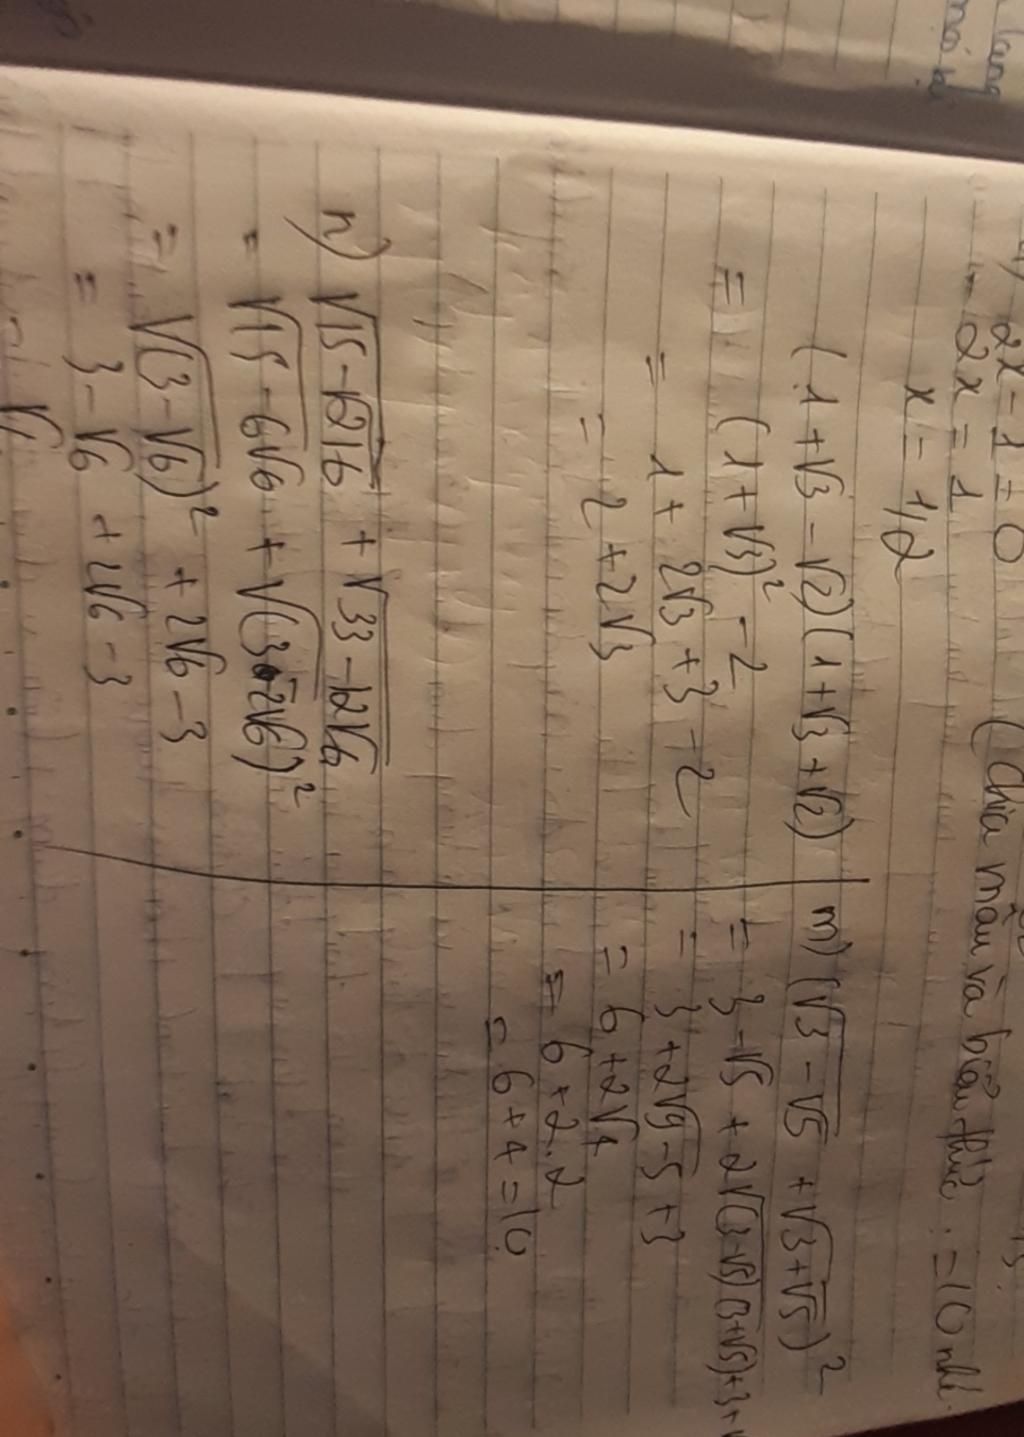 2x - 1 = 0
2x = 1
x = 1/2
(chia mẫu và biểu thức : = 10 nhé.
(1 + √3 - √2)(1 + √3 + √2)
= (1 + √3)² - 2
= 1 + 2√3 + 3 - 2
= 2 + 2√3
m) (√(3 - √5) + √(3 + √5))²
= 3 - √5 + 2√((3-√5)(3+√5)) + 3 +
= 3 + 2√(9 - 5) + 3
= 6 + 2√4
= 6 + 2.2
= 6 + 4 = 10
n) √(15 - √216) + √(33 - 12√6)
= √(15 - 6√6) + √((3 - 2√6)²)
= √((3 - √6)²) + 2√6 - 3
= 3 - √6 + 2√6 - 3